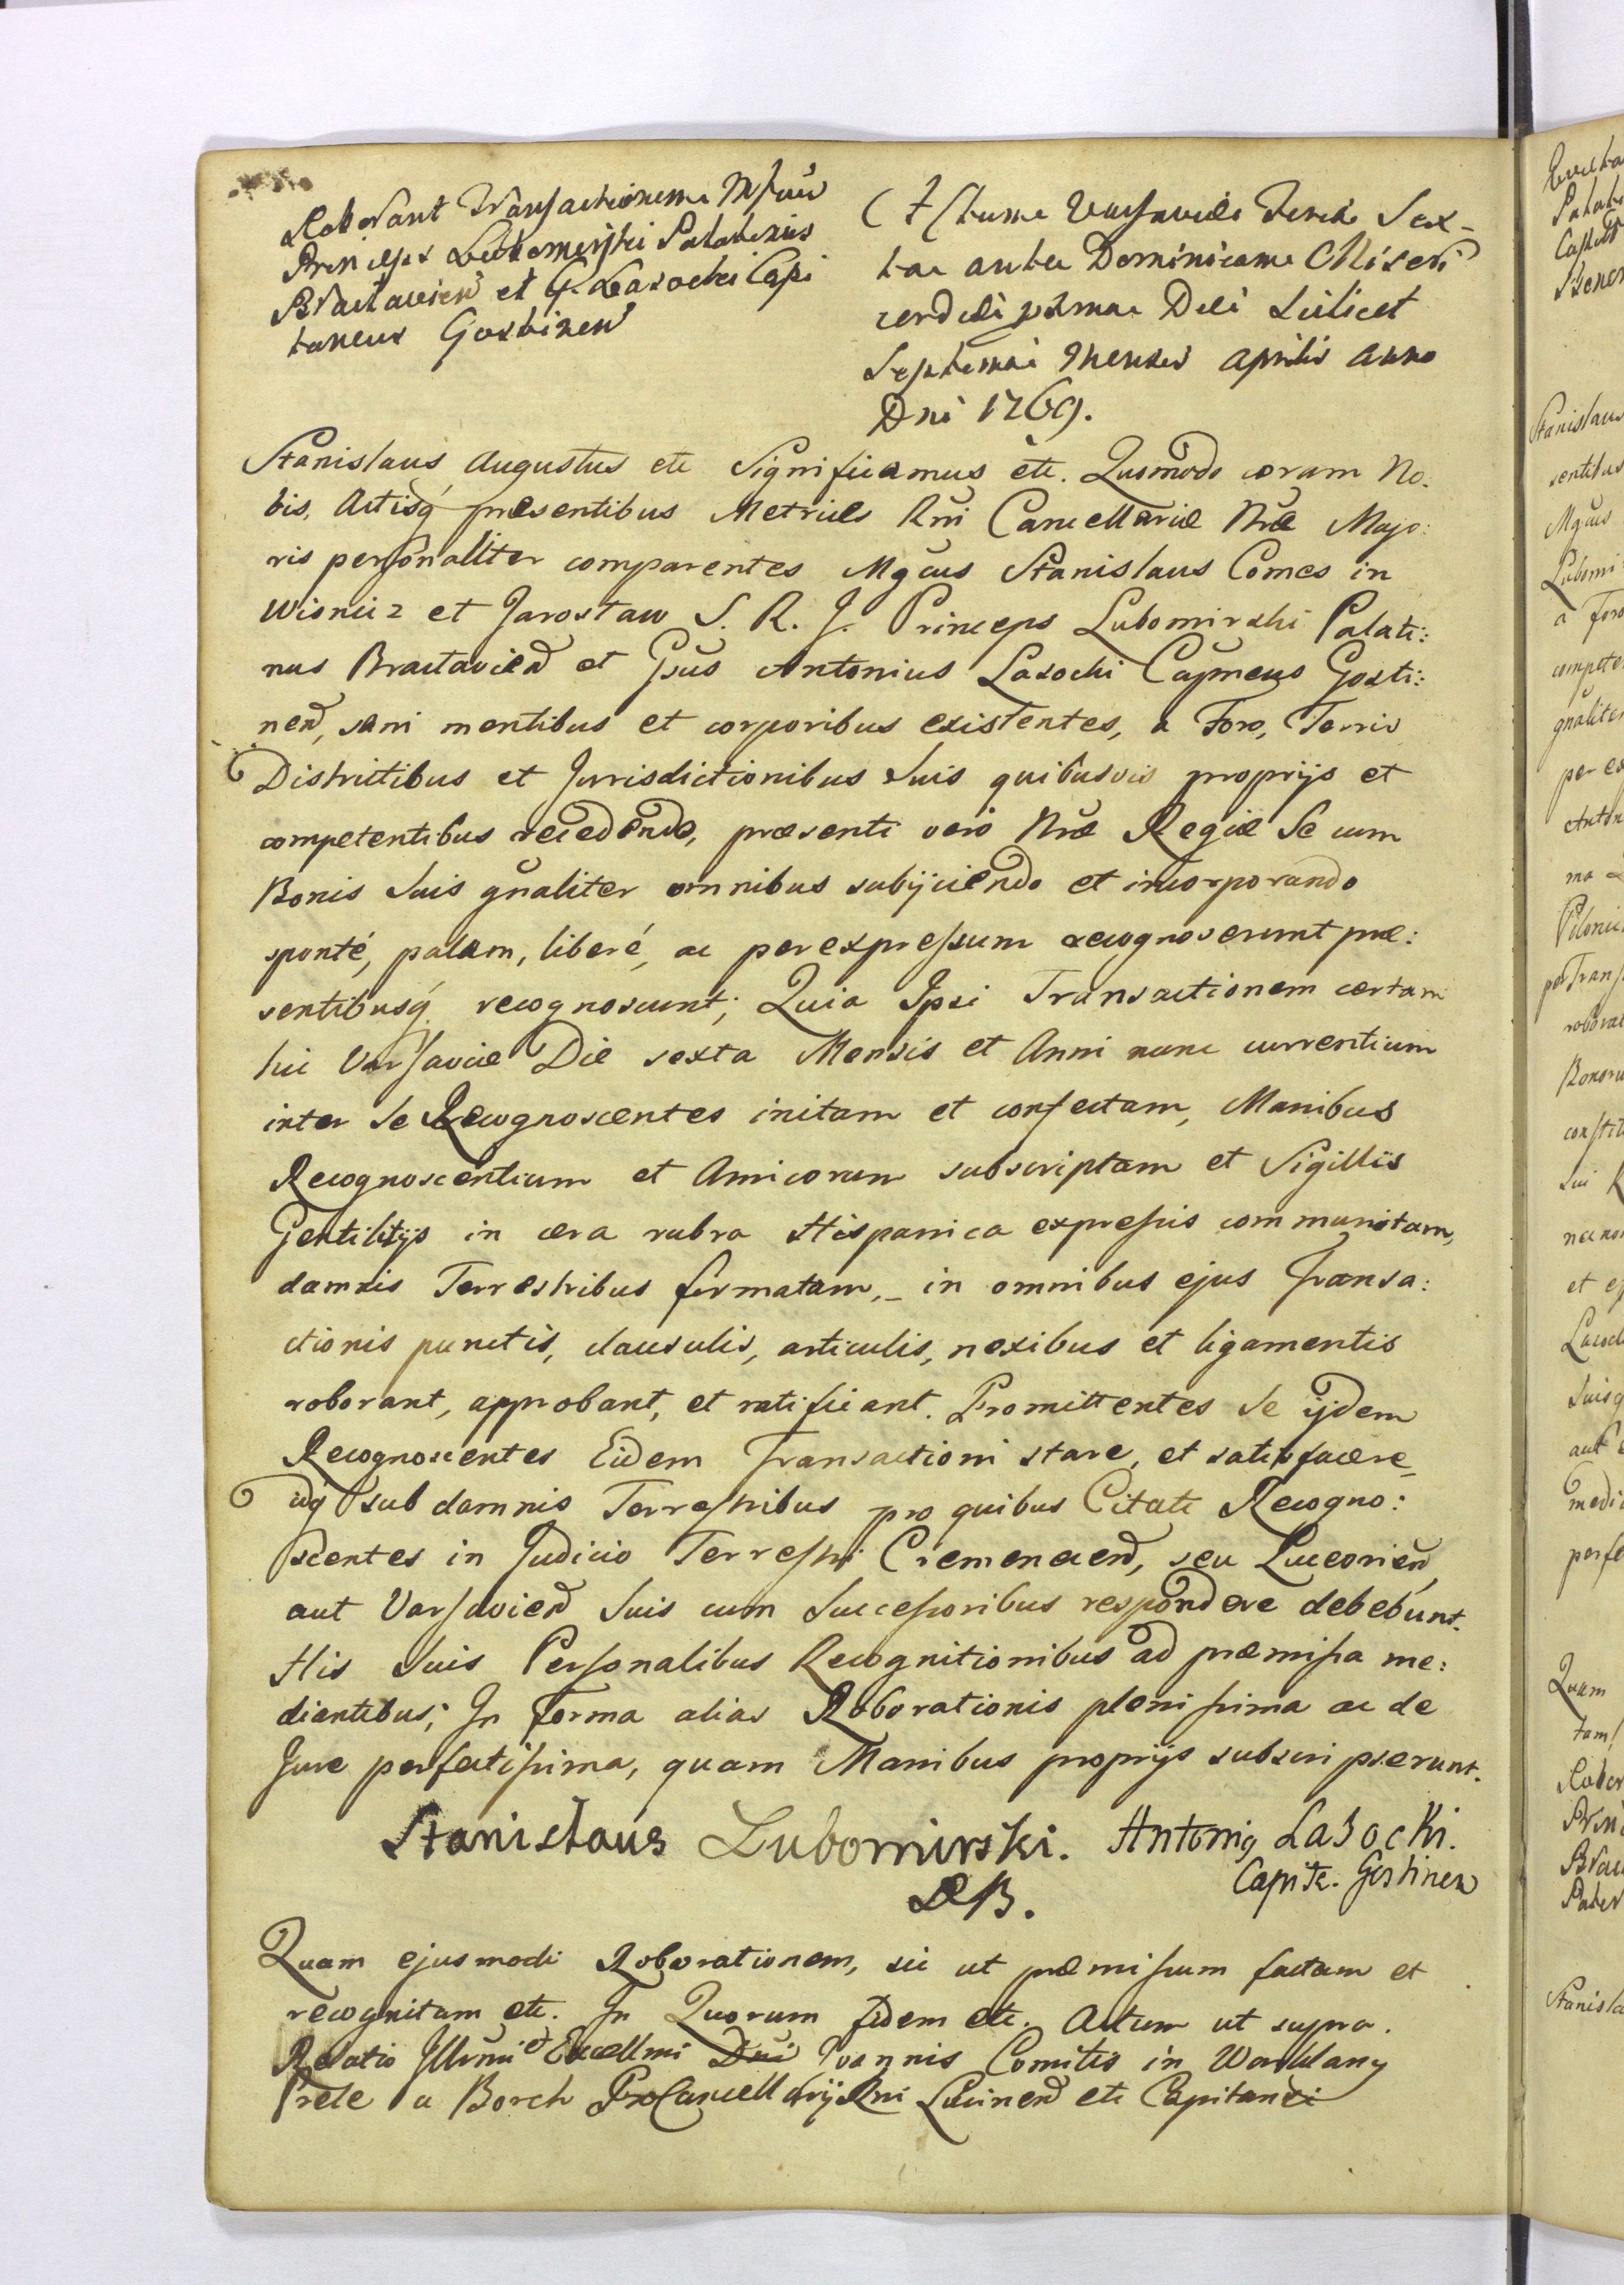 Roborant Transactionem Mgcus
Princeps Lubomirski Palatinus
Bractavien et G. Lasocki Capi
taneus Gostinen
Actum Varsaviæ Feria Sex-
ta ante Dominicam Miseri
cordiæ proxima Die Scilicet
Septima Mensis Aprilis Anno
Dni 1769.
Stanislaus Augustus etc Significamus etc. Quomodo coram No.
bis, Actisq́ præsentibus Metrices Rni Cancellariæ Nræ Majo:
ris personaliter comparentes Mgcus Stanislaus Comes in
Wisnicz et Jarosław S. R. J. Princeps Lubomirski Palati:
nus Bractavien et Gsus Antonius Lasocki Capneus Gosti:
nen, sani mentibus et corporibus existentes, a Foro, Terris
Districtibus et Jurisdictionibus Suis quibusvis proprijs et
competentibus recedendo, præsenti vero Nræ Regiæ Se cum
Bonis Suis gnaliter omnibus subijciendo et incorporando
sponté, palam, liberé, ac per expressum recognoverunt præ:
sentibusq́ recognoscunt; Quia Ipsi Transactionem certam
hic Varsaviæ Die sexta Mensis et Anni nunc currentium
inter Se Recognoscentes initam et confectam, Manibus
Recognoscentium et Amicorum subscriptam et Sigillis
Gentilitijs in cera rubra Hispanica expressis communitam,
damnis Terrestribus firmatam, _ in omnibus ejus Transa:
ctionis punctis, clausulis, articulis, nexibus et ligamentis
roborant, approbant, et ratificant. Promittentes Se ijdem
Recognoscentes Eidem Transactioni stare, et satisfacere
idq́ sub damnis Terrestribus pro quibus Citati Recogno:
scentes in Judicio Terrestri Cremenecen, seu Luceorien,
aut Varsavien Suis cum Successoribus respondere debebunt.
His Suis Personalibus Recognitionibus ad præmissa me:
diantibus; In Forma alias Roborationis plenissima ac de
Jure perfectissima, quam Manibus proprijs subscripserunt.
Stanislaus Lubomirski. Antoniq Lasocki.
Capite. Gostinen
Quam ejusmodi Roborationem, sic ut præmissum factam et
recognitam etc. In Quorum fidem etc. Actum ut supra.
Relatio Jllrmi et Excellmi Dni Joannis Comitis in Warklany
Prele a Borch ProCancellarij Rni Lucinen etc Capitanei